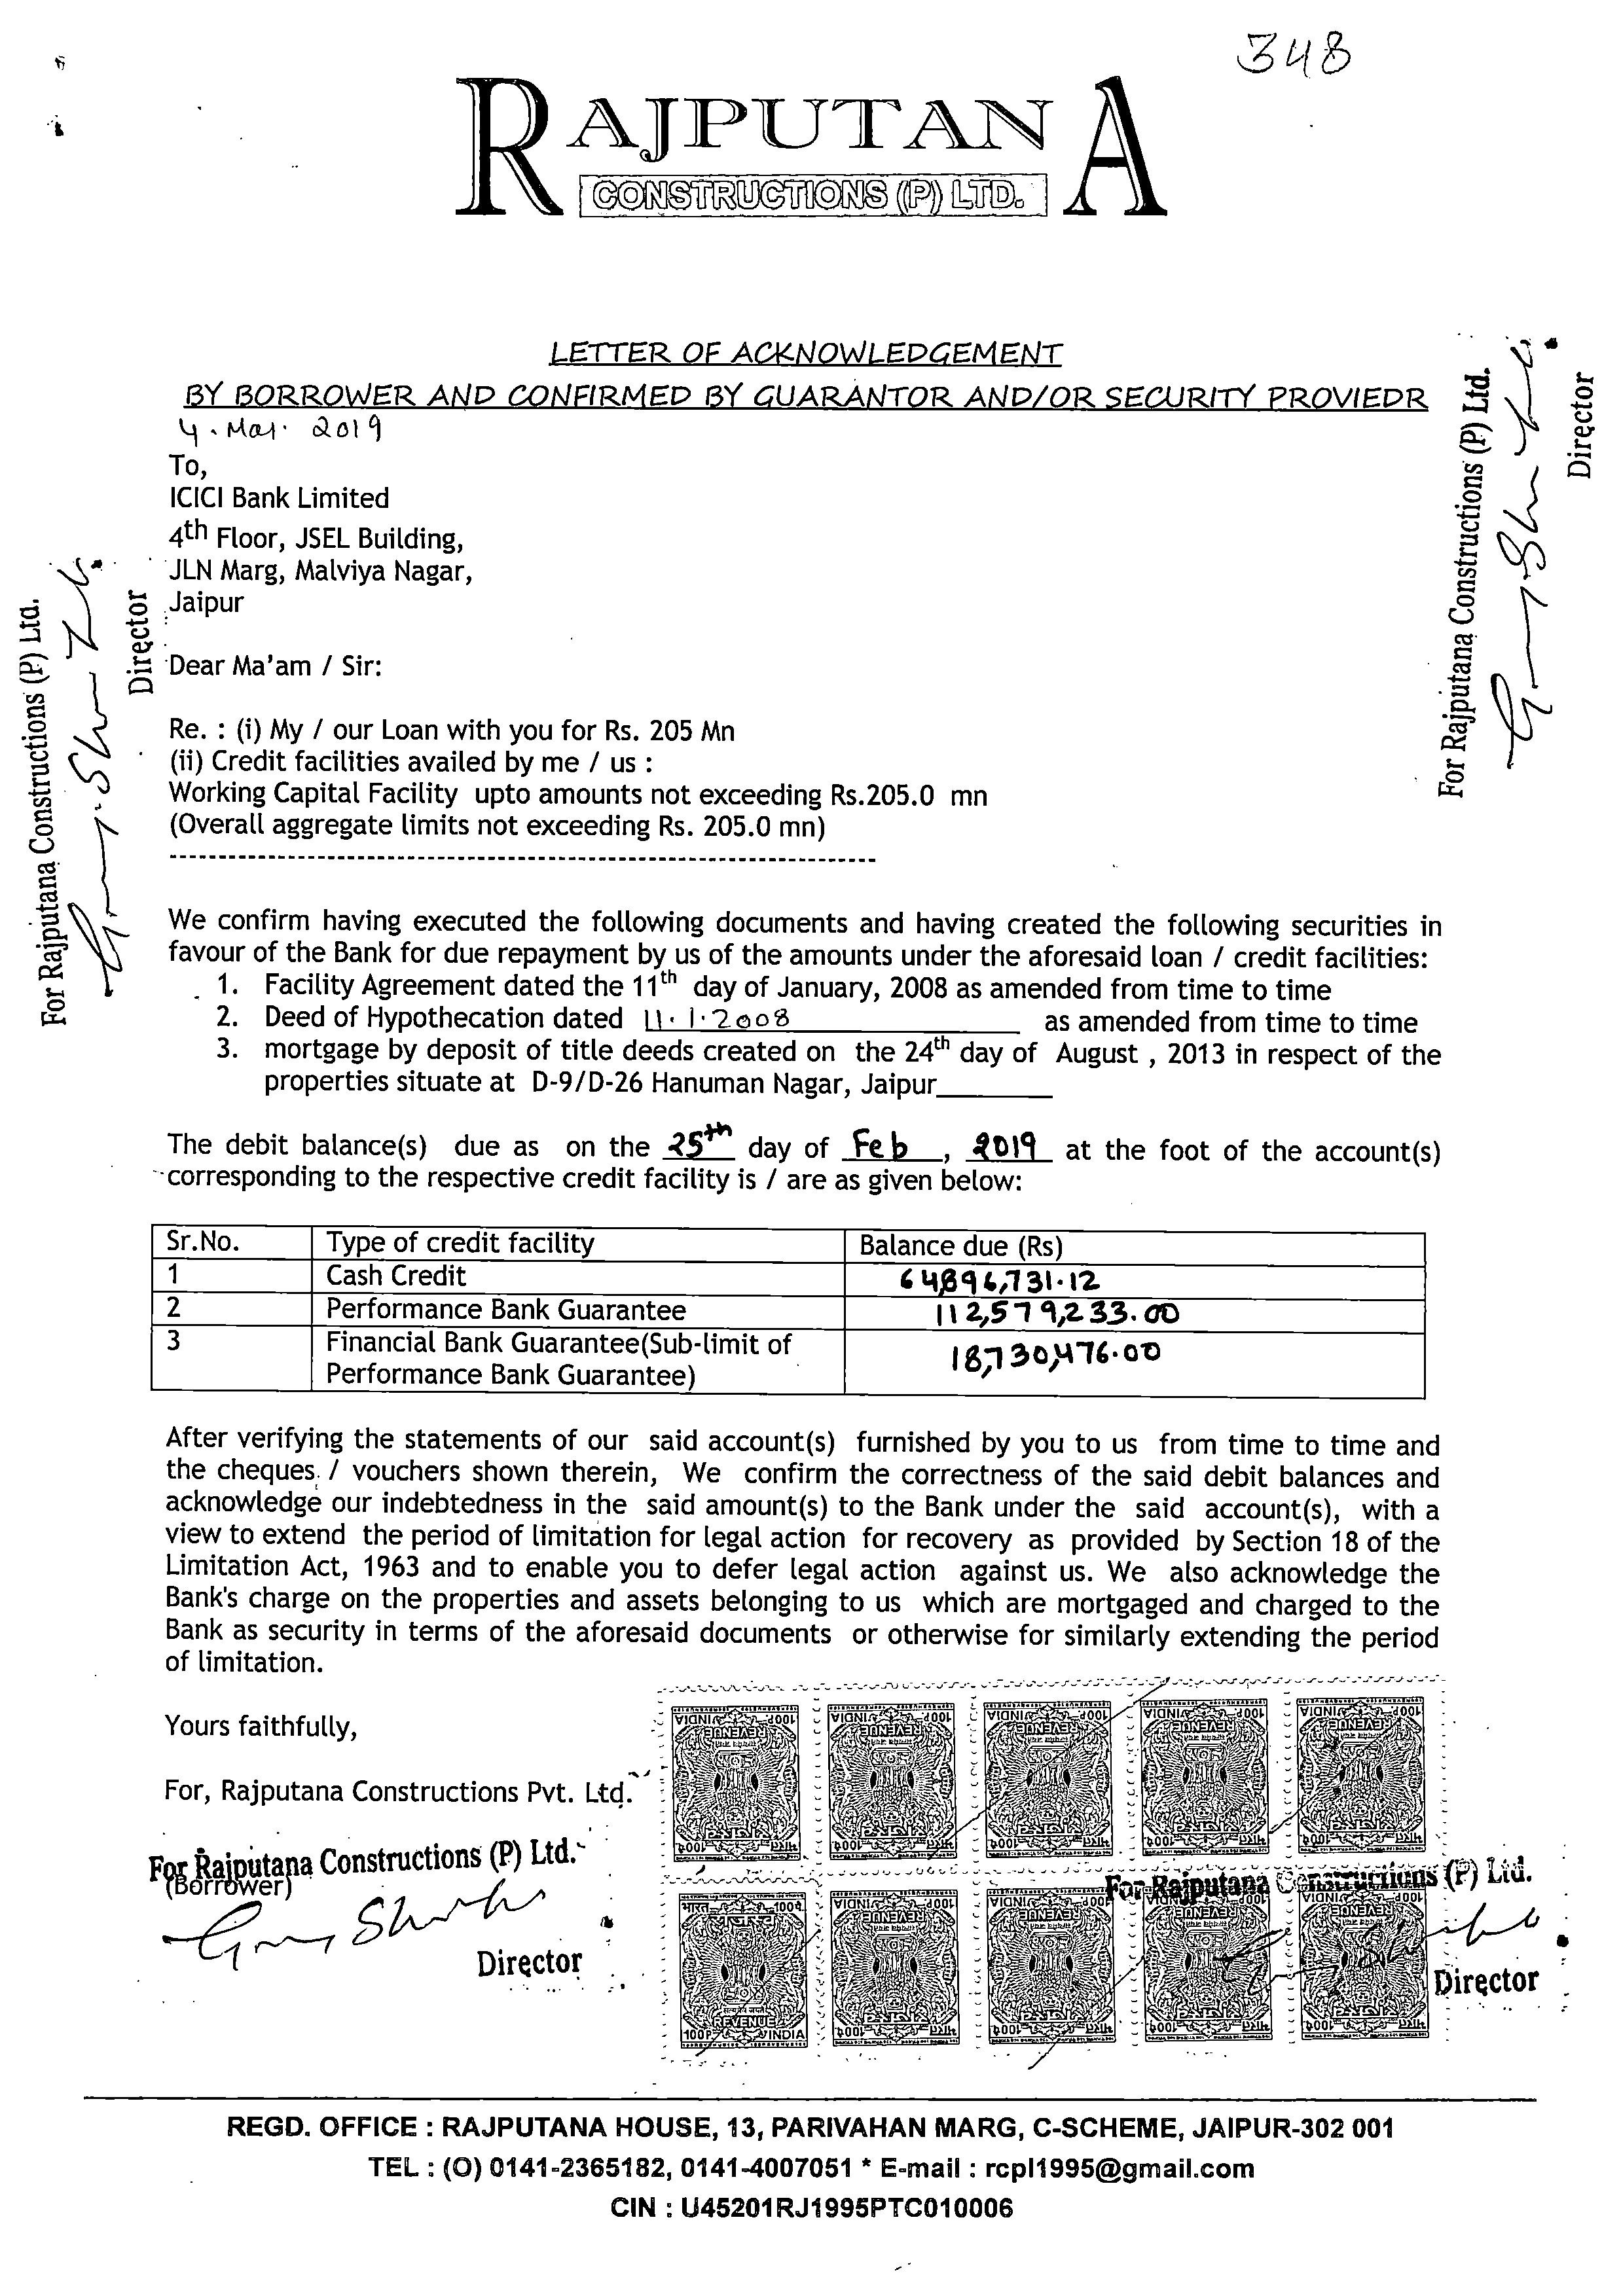 348
RAJPUTANA
CONSTRUCTIONS (P) LTD.
LETTER OF ACKNOWLEDGEMENT
BY BORROWER AND CONFIRMED BY GUARANTOR AND/OR SECURITY PROVIEDR
4. Mar. 2019
To,
ICICI Bank Limited
4th Floor, JSEL Building,
JLN Marg, Malviya Nagar,
Jaipur
For Rajputana Constructions (P) Ltd.
Director
For Rajputana Constructions (P) Ltd.
Director
Dear Ma'am / Sir:
Re. : (i) My / our Loan with you for Rs. 205 Mn
(ii) Credit facilities availed by me / us :
Working Capital Facility upto amounts not exceeding Rs.205.0 mn
(Overall aggregate limits not exceeding Rs. 205.0 mn)
We confirm having executed the following documents and having created the following securities in
favour of the Bank for due repayment by us of the amounts under the aforesaid loan / credit facilities:
1. Facility Agreement dated the 11th day of January, 2008 as amended from time to time
2. Deed of Hypothecation dated 11.1.2008 as amended from time to time
3. mortgage by deposit of title deeds created on the 24th day of August , 2013 in respect of the
properties situate at D-9/D-26 Hanuman Nagar, Jaipur
The debit balance(s) due as on the 25th day of Feb, 2019 at the foot of the account(s)
corresponding to the respective credit facility is / are as given below:
Sr.No. Type of credit facility Balance due (Rs)
1 Cash Credit 64,896,731.12
2 Performance Bank Guarantee 112,579,233.00
3 Financial Bank Guarantee(Sub-limit of 18,730,476.00
Performance Bank Guarantee)
After verifying the statements of our said account(s) furnished by you to us from time to time and
the cheques / vouchers shown therein, We confirm the correctness of the said debit balances and
acknowledge our indebtedness in the said amount(s) to the Bank under the said account(s), with a
view to extend the period of limitation for legal action for recovery as provided by Section 18 of the
Limitation Act, 1963 and to enable you to defer legal action against us. We also acknowledge the
Bank's charge on the properties and assets belonging to us which are mortgaged and charged to the
Bank as security in terms of the aforesaid documents or otherwise for similarly extending the period
of limitation.
Yours faithfully,
For, Rajputana Constructions Pvt. Ltd.
For Rajputana Constructions (P) Ltd.
(Borrower)
Director
For Rajputana Constructions (P) Ltd.
Director
भारत 100P
REVENUE
100P INDIA
REGD. OFFICE : RAJPUTANA HOUSE, 13, PARIVAHAN MARG, C-SCHEME, JAIPUR-302 001
TEL : (O) 0141-2365182, 0141-4007051 * E-mail : rcpl1995@gmail.com
CIN : U45201RJ1995PTC010006